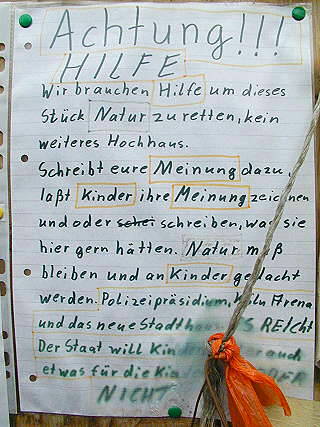 Achtung!!!
HILFE
Wir brauchen Hilfe um dieses
Stück Natur zu retten, kein
weiteres Hochhaus.
Schreibt eure Meinung dazu,
laßt Kinder ihre Meinung zeichnen
und oder schei schreiben, was sie
hier gern hätten. Natur muß
bleiben und an Kinder gedacht
werden. Polizeipräsidium, Köln Arena
und das neue Stadthaus REICHT
Der Staat will Kinder auch
etwas für die
NICHT